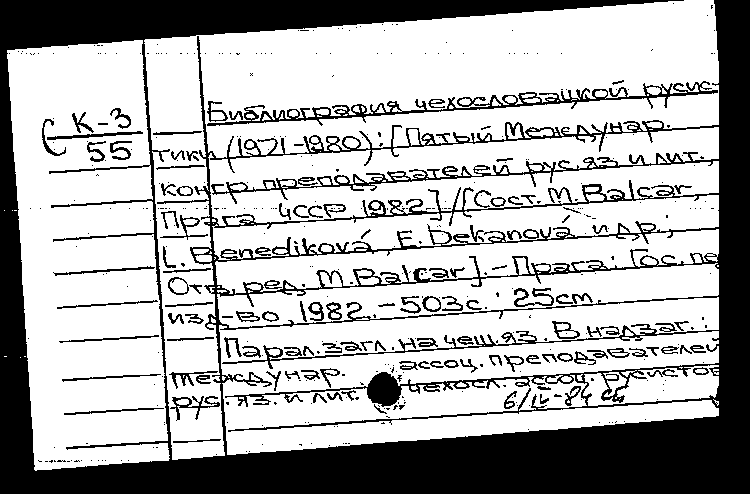 К-3
55
Библиография чехословацкой русис-
тики (1971-1980): [Пятый Междунар.
конгр. преподавателей рус. яз. и лит.,
Прага, ЧССР, 1982] / [Сост. M. Balcar,
L. Benediková, E. Dekanová и др.;
Отв. ред. M. Balcar]. - Прага: Гос. пе
изд-во, 1982. - 503с.; 25cm.
Парал. загл. на чеш. яз. В надзаг.:
Междунар. ассоц. преподавателей
рус. яз. и лит. чехосл. ассоц. русистов
6/IV-84